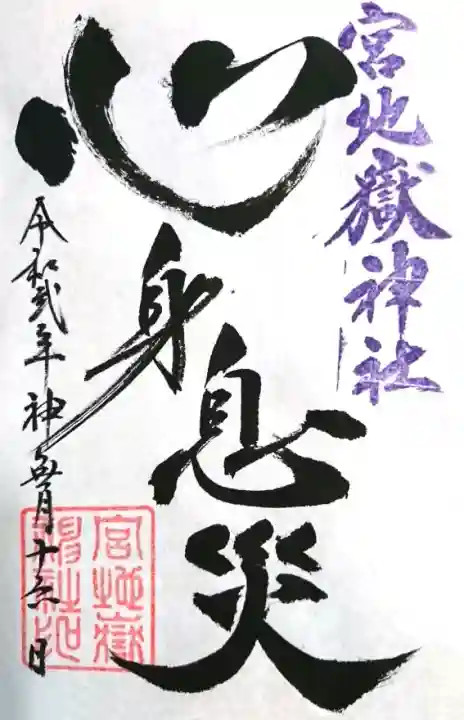 宮地嶽神社
心身息災
令和弐年神無月十六日
宮地嶽
神社